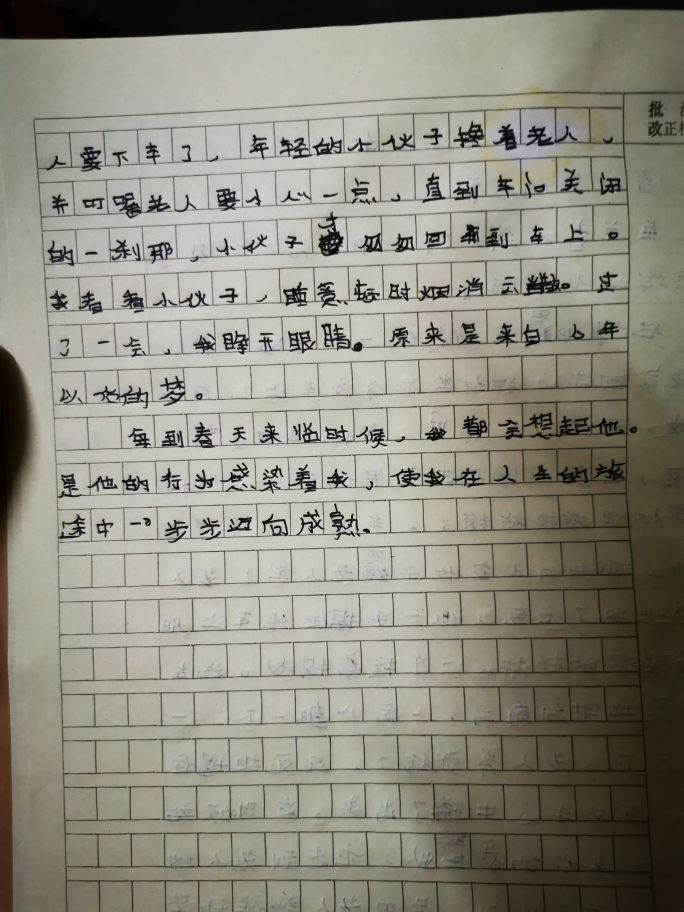 批
改正
人要下车了，年轻的小伙子搀着老人，
并叮嘱老人要小心一点，直到车门关闭
的一刹那，小伙子才匆匆回到车上。
我看着小伙子，睡意顿时烟消云散。过
了一会，我睁开眼睛。原来是来自六年
以前的梦。
每到春天来临时候，我都会想起他。
是他的行为感染着我，使我在人生的旅
途中一步步迈向成熟。